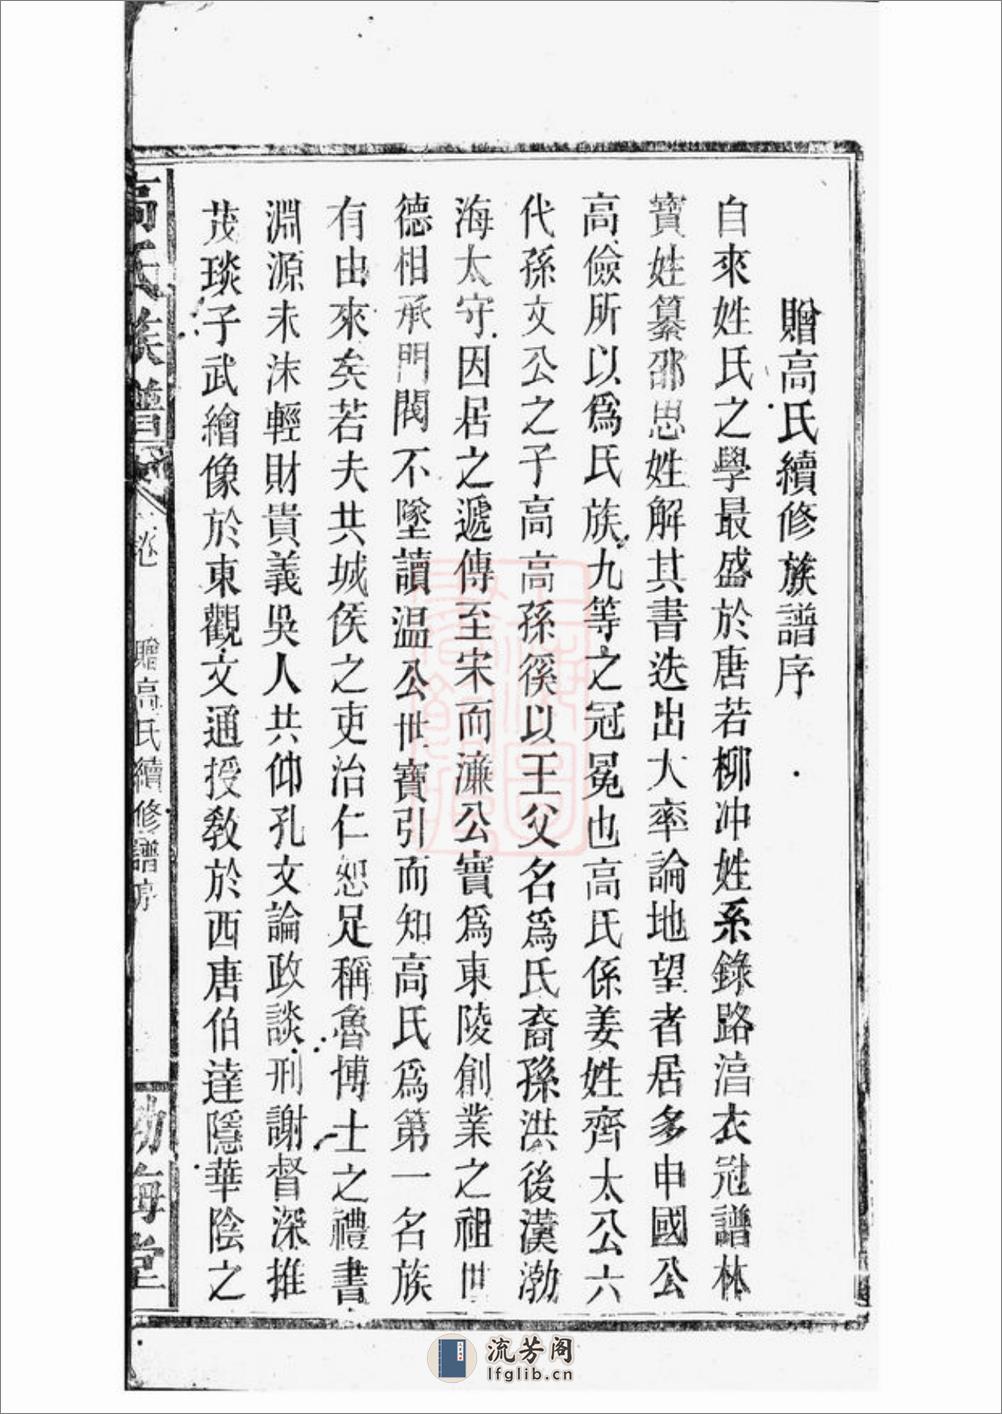 贈高氏續修族譜序
自來姓氏之學最盛於唐若柳冲姓系錄路淓衣冠譜林
寶姓纂邵思姓解其書迭出大率論地望者居多申國公
高儉所以爲氏族九等之冠冕也高氏係姜姓齊太公六
代孫文公之子高高孫傒以王父名爲氏裔孫洪後漢渤
海太守因居之遞傳至宋而濂公實爲東陵創業之祖世
德相承門閥不墜讀温公世寶引而知高氏爲第一名族
有由來矣若夫共城侯之吏治仁恕足稱魯博士之禮書
淵源未沫輕財貴義吳人共仰孔文論政談刑謝督深推
茂琰子武繪像於東觀文通授敎於西唐伯達隱華陰之
高氏族譜 卷 贈高氏續修譜序 渤海堂
上海圖書館藏
流芳阁
lfglib.cn